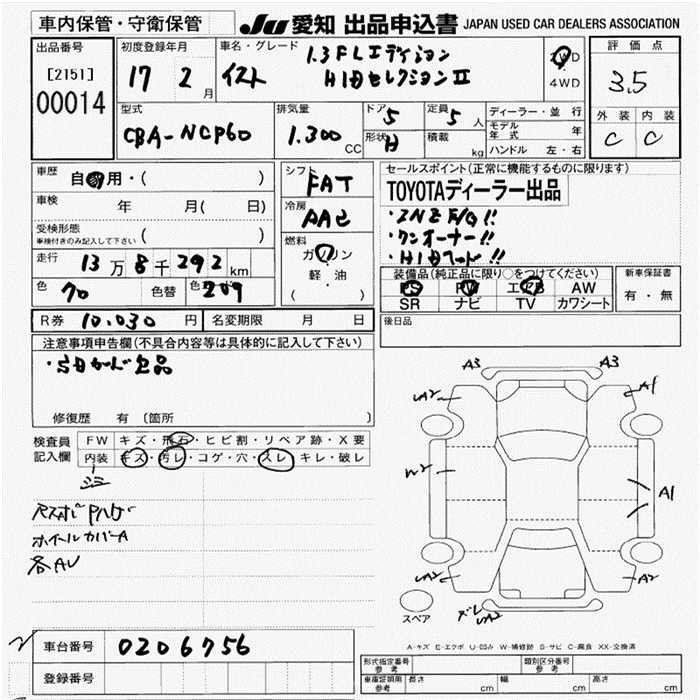 車内保管・守衛保管
JU 愛知 出品申込書 JAPAN USED CAR DEALERS ASSOCIATION
出品番号
[2151]
00014
初度登録年月
17 2月
車名・グレード
イスト
1.3 FLエディション
HIDセレクションII
2WD
4WD
評価点
3.5
外装 内装
C C
型式
CBA-NCP60
排気量
1.300 CC
ドア 5
形状 H
定員 5人
積載 kg
ディーラー・並行
モデル年式 年
ハンドル 左・右
車歴
自家用・( )
車検 年 月( 日)
受検形態
車検付きのみ記入して下さい ( )
走行 13万8千292km
色 色替 色コード 209
シフト
FAT
冷房
AAC
燃料
ガソリン
軽・油
( )
セールスポイント(正常に機能するものに限ります)
TOYOTAディーラー出品
・ワンオーナー!!
装備品(純正品に限り○をつけてください)
PS PW エアB AW
SR ナビ TV カワシート
新車保証書
有・無
後日品
R券 10.030円 名変期限 月 日
注意事項申告欄(不具合内容等は具体的に記入して下さい)
修復歴 有 (箇所 )
検査員記入欄
FW キズ・飛石・ヒビ割・リペア跡・X要
内装 キズ・汚レ・コゲ・穴・スレ・キレ・破レ
シミ
ホイールカバーA
各AU
A3 A3
UA2 A1
W2 A1
UA2 A2
スペア
ズレ UA2
A-キズ E-エクボ U-凹み W-補修跡 S-サビ C-腐食 XX-交換済
車台番号 0206756
登録番号
形式指定番号 参考
類別区分番号 参考
車庫証明用 参考 長さ cm 幅 cm 高さ cm